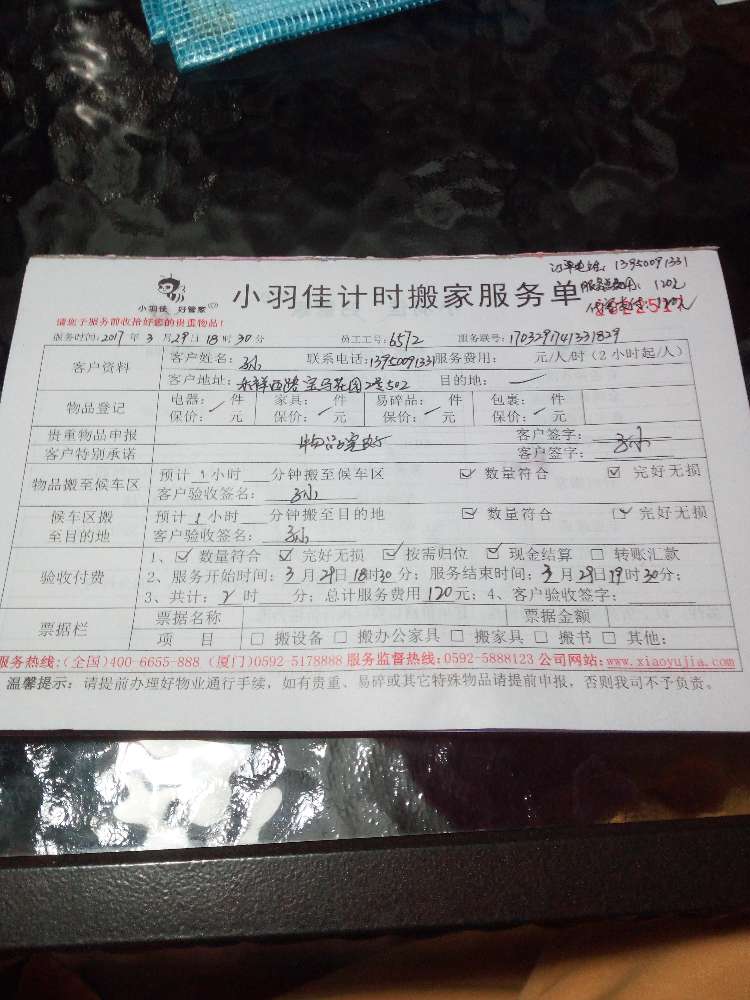 订单电话：13950091331
小羽佳 好管家
小羽佳计时搬家服务单
服务费用：120元
请您于服务前收拾好您的贵重物品！
服务时间：2017年3月29日18时30分 员工工号：6572 服务联号：1703291741331829
客户资料 客户姓名：孙 联系电话：13950091331 服务费用： 元/人/时（2小时起/人）
客户地址：禾祥西路宝马花园2号502 目的地：
物品登记 电器： 件 家具： 件 易碎品： 件 包裹： 件
保价： 元 保价： 元 保价： 元 保价： 元
贵重物品申报 客户签字：
客户特别承诺 物品完好 客户签字：孙
物品搬至候车区 预计1小时 分钟搬至候车区 ☑ 数量符合 ☑ 完好无损
客户验收签名：孙
候车区搬至目的地 预计1小时 分钟搬至目的地 ☑ 数量符合 ☑ 完好无损
客户验收签名：孙
验收付费 1、☑ 数量符合 ☑ 完好无损 ☑ 按需归位 ☑ 现金结算 □ 转账汇款
2、服务开始时间：3月29日18时30分；服务结束时间：3月29日19时30分；
3、共计：2时 分；总计服务费用120元；4、客户验收签字：
票据栏 票据名称 票据金额
项 目 □ 搬设备 □ 搬办公家具 □ 搬家具 □ 搬书 □ 其他：
服务热线：（全国）400-6655-888（厦门）0592-5178888 服务监督热线：0592-5888123 公司网站：www.xiaoyujia.com
温馨提示：请提前办理好物业通行手续，如有贵重、易碎或其它特殊物品请提前申报，否则我司不予负责。